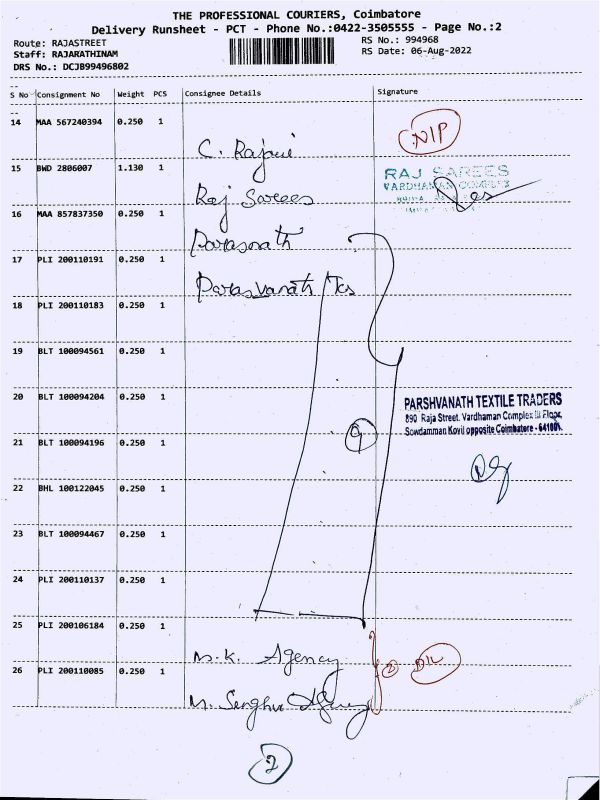 THE PROFESSIONAL COURIERS, Coimbatore
Delivery Runsheet - PCT - Phone No.:0422-3505555 - Page No.:2
Route: RAJASTREET
RS No.: 994968
Staff: RAJARATHINAM
RS Date: 06-Aug-2022
DRS No.: DCJB99496802
S No Consignment No Weight PCS Consignee Details Signature
14 MAA 567240394 0.250 1
C. Rajani
15 BWD 2806007 1.130 1
RAJ SAREES
VARDHAMAN COMPLEX
Raj Sarees
16 MAA 857837350 0.250 1
Parasnath
17 PLI 200110191 0.250 1
Parasvanath Tex
18 PLI 200110183 0.250 1
19 BLT 100094561 0.250 1
20 BLT 100094204 0.250 1
PARSHVANATH TEXTILE TRADERS
890 Raja Street. Vardhaman Complex III Floor,
Sowdamman Kovil opposite Coimbatore - 641001.
21 BLT 100094196 0.250 1
9
22 BHL 100122045 0.250 1
23 BLT 100094467 0.250 1
24 PLI 200110137 0.250 1
25 PLI 200106184 0.250 1
M.K. Agency
2
26 PLI 200110085 0.250 1
2